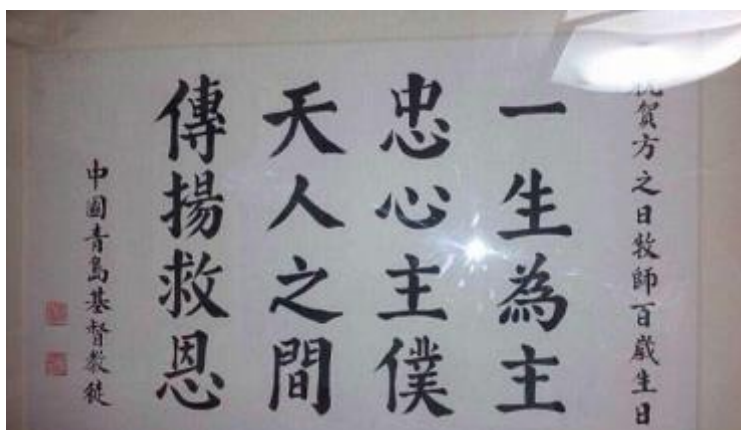 祝賀方之日牧師百歲生日
一生為主
忠心主僕
天人之間
傳揚救恩
中國青島基督教徒